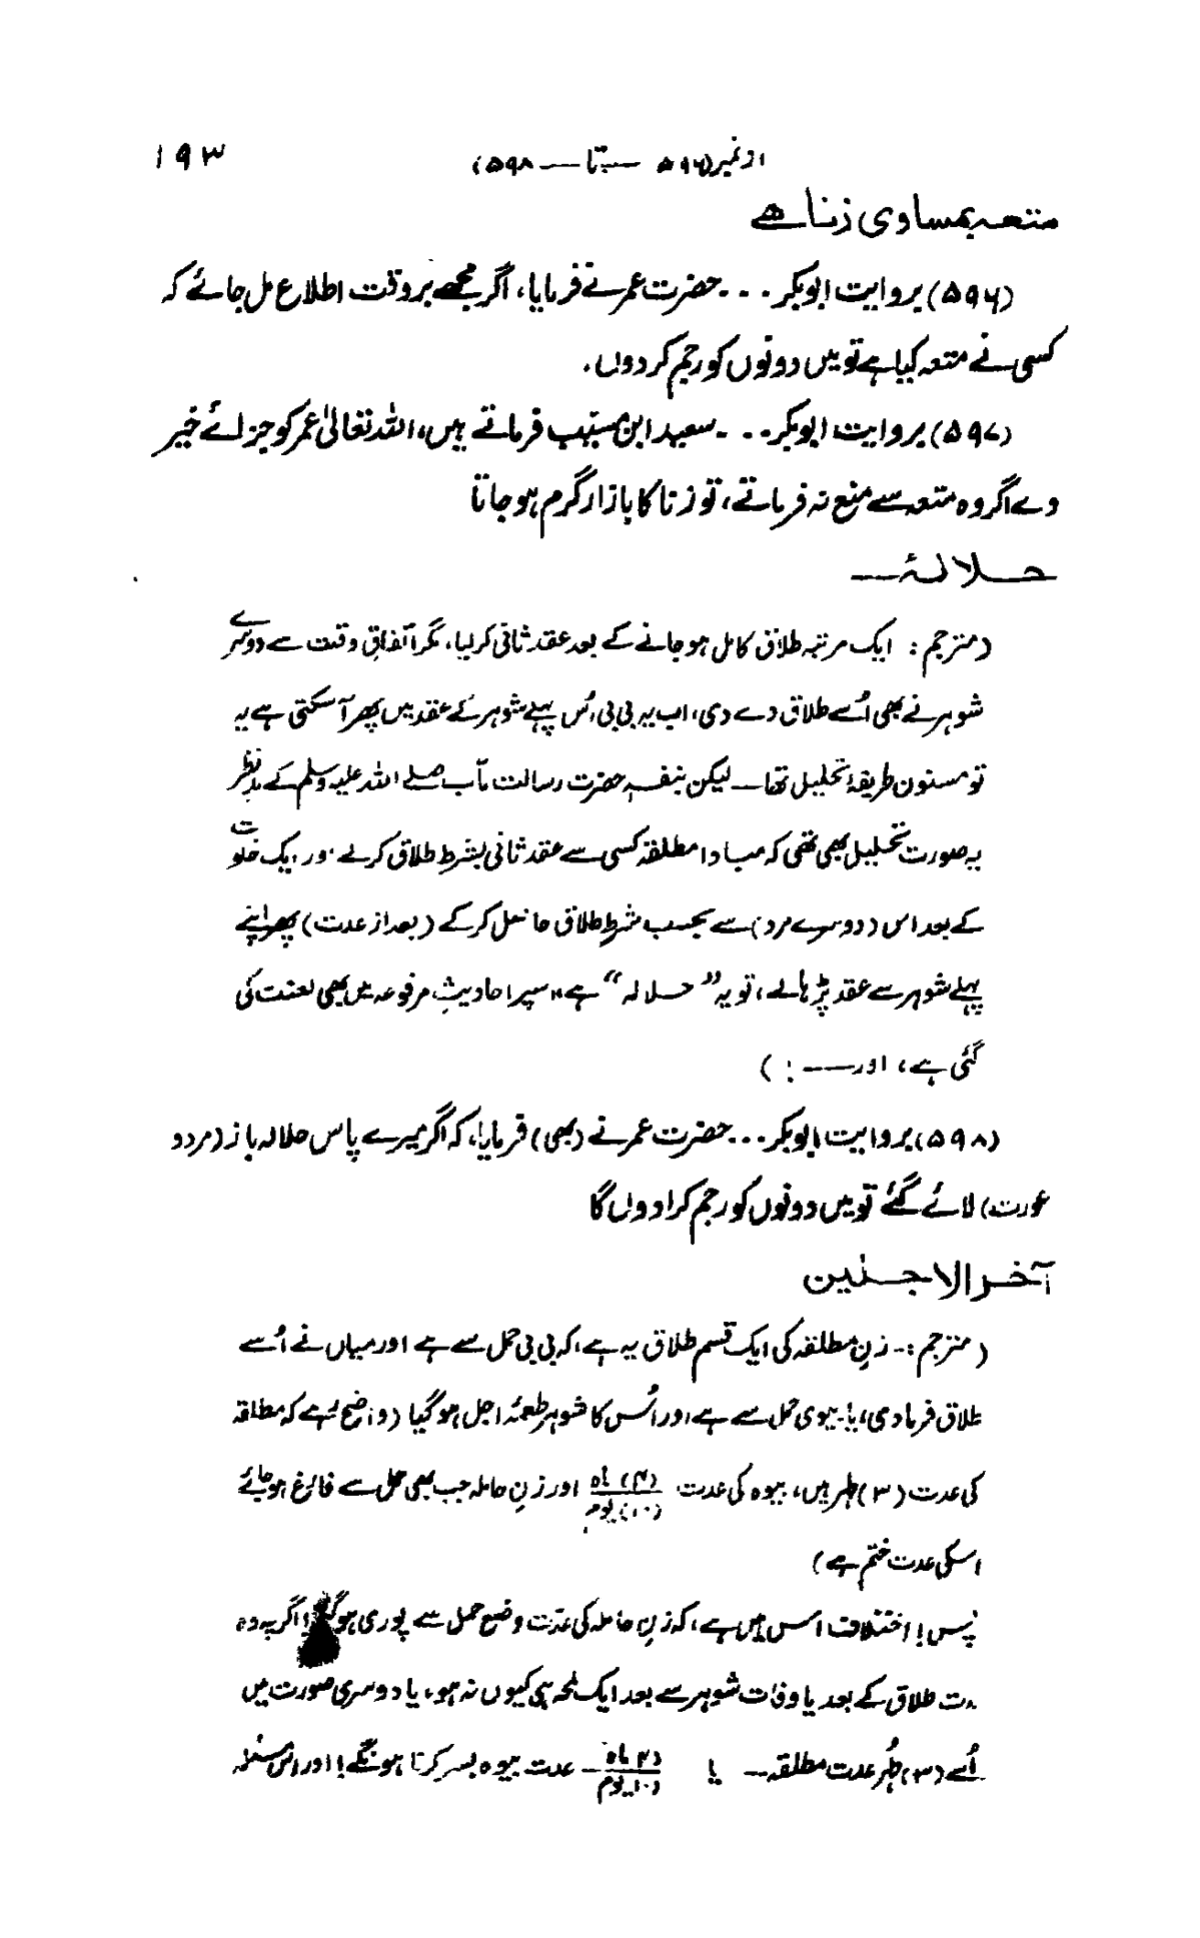 ۱۹۳
از نمبر (۵۹۶ — تا — ۵۹۸)
متعہ بمساوی زنا ہے
(۵۹۶) بروایت ابوبکر ... حضرت عمر نے فرمایا، اگر مجھے بر وقت اطلاع مل جائے کہ
کسی نے متعہ کیا ہے تو میں دونوں کو رجم کر دوں.
(۵۹۷) بروایت ابوبکر ... سعید ابن مسیّب فرماتے ہیں، اللہ تعالیٰ عمر کو جزائے خیر
دے اگر وہ متعہ سے منع نہ فرماتے، تو زنا کا بازار گرم ہو جاتا
حلالہٗ —
(مترجم: ایک مرتبہ طلاق کامل ہو جانے کے بعد عقد ثانی کر لیا، مگر اتفاقِ وقت سے دوسرے
شوہر نے بھی اُسے طلاق دے دی، اب یہ بی بی اُس پہلے شوہر کے عقد میں پھر آ سکتی ہے یہ
تو مسنون طریقۂ تحلیل تھا — لیکن حضرت رسالت مآب صلے اللہ علیہ وسلم کے مدِ نظر
یہ صورت تحلیل بھی تھی کہ مبادا مطلقہ کسی سے عقد ثانی بشرط طلاق کرلے اور ایک خلوت
کے بعد اس (دوسرے مرد) سے بحسب شرطِ طلاق حاصل کرکے (بعد از عدت) پھر اپنے
پہلے شوہر سے عقد پڑھالے، تو یہ ”حلالہ“ ہے، احادیثِ مرفوعہ میں بھی لعنت کی
گئی ہے، اور —— : )
(۵۹۸) بروایت ابوبکر ... حضرت عمر نے (بھی) فرمایا، کہ اگر میرے پاس حلالہ باز (مرد و
عورت) لائے گئے تو میں دونوں کو رجم کرا دوں گا
آخر الاجلین
(مترجم :- زنِ مطلقہ کی ایک قسم طلاق یہ ہے، کہ بی بی حمل سے ہے اور میاں نے اُسے
طلاق فرما دی، یا بیوی حمل سے ہے اور اُس کا شوہر طعمۂ اجل ہو گیا (واضح رہے کہ مطلقہ
کی عدت (۳) طہر ہیں، بیوہ کی عدت (۴) ماہ (۱۰) یوم اور زنِ حاملہ جب بھی حمل سے فارغ ہو جائے
اسکی عدت ختم ہے)
پس! اختلاف اس میں ہے، کہ زنِ حاملہ کی عدت وضع حمل سے پوری ہوگی! اگر یہ وہ
مدت طلاق کے بعد یا وفات شوہر سے بعد ایک لمحہ ہی کیوں نہ ہو، یا دوسری صورت میں
اُسے (۳) طُہر عدت مطلقہ — یا (۴ ماہ ۱۰ یوم) — عدت بیوہ بسر کرنا ہونگے! اور اس مسئلہ